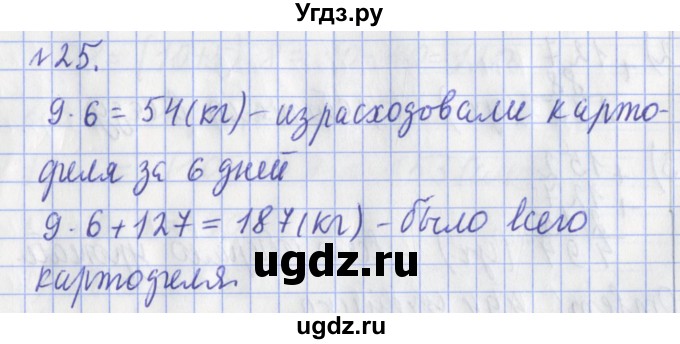 Угдз.ру
№25.
9·6=54(кг)-израсходовали карто-
феля за 6 дней
9·6+127=187(кг)-было всего
картофеля.
ugdz.ru
ugdz.ru